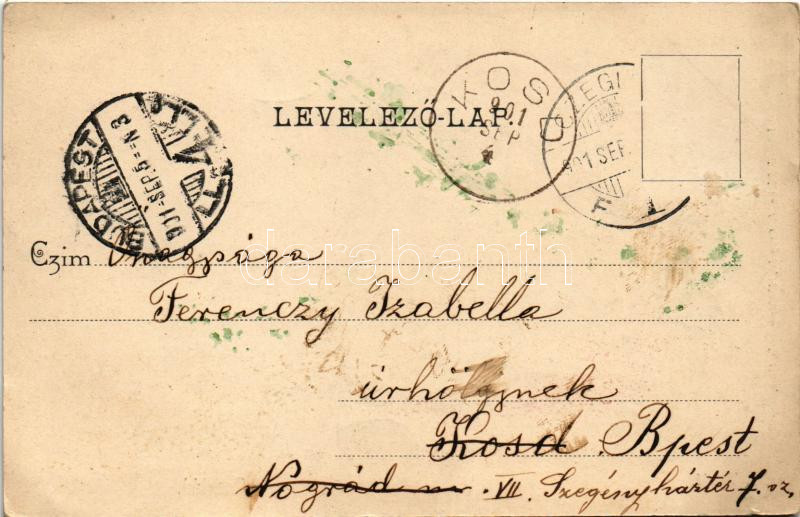 LEVELEZŐ-LAP.
KOSD
901
SEP
4
CZEGL
901 SEP.
BUDAPEST
901-SEP.5-N3
Czim Őnagysága
Ferenczy Izabella
úrhölgynek
Kosd Bpest
Nográd m. VII. Szegényháztér 7. sz.
darabanth